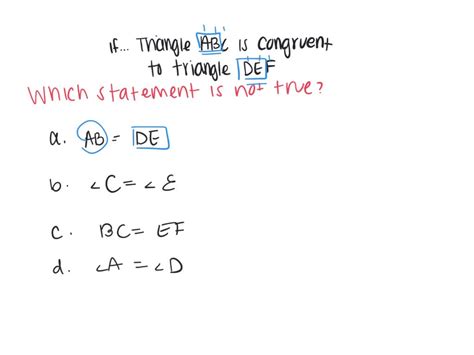 if... Triangle ABC is congruent
to triangle DEF
Which statement is not true?
a. AB = DE
b. ∠C = ∠E
c. BC = EF
d. ∠A = ∠D